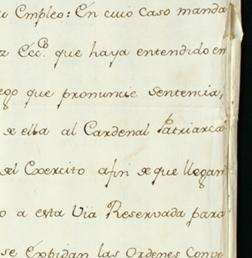 u Empleo: En cuio Caso manda
z Ecc.º que haya entendido en
ego que pronuncie Sentencia,
se ella al Cardenal Patriarca
sel Exercito afin se que llegan
o a esta Via Reservada para
se Expidan las Ordenes Conve